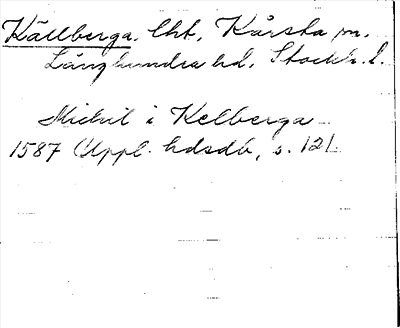 Källberga, lht, Kårsta sn.
Långhundra hd, Stockh. l.
Mickil i Kelberga
1587 (Uppl. hdsdb, s. 121